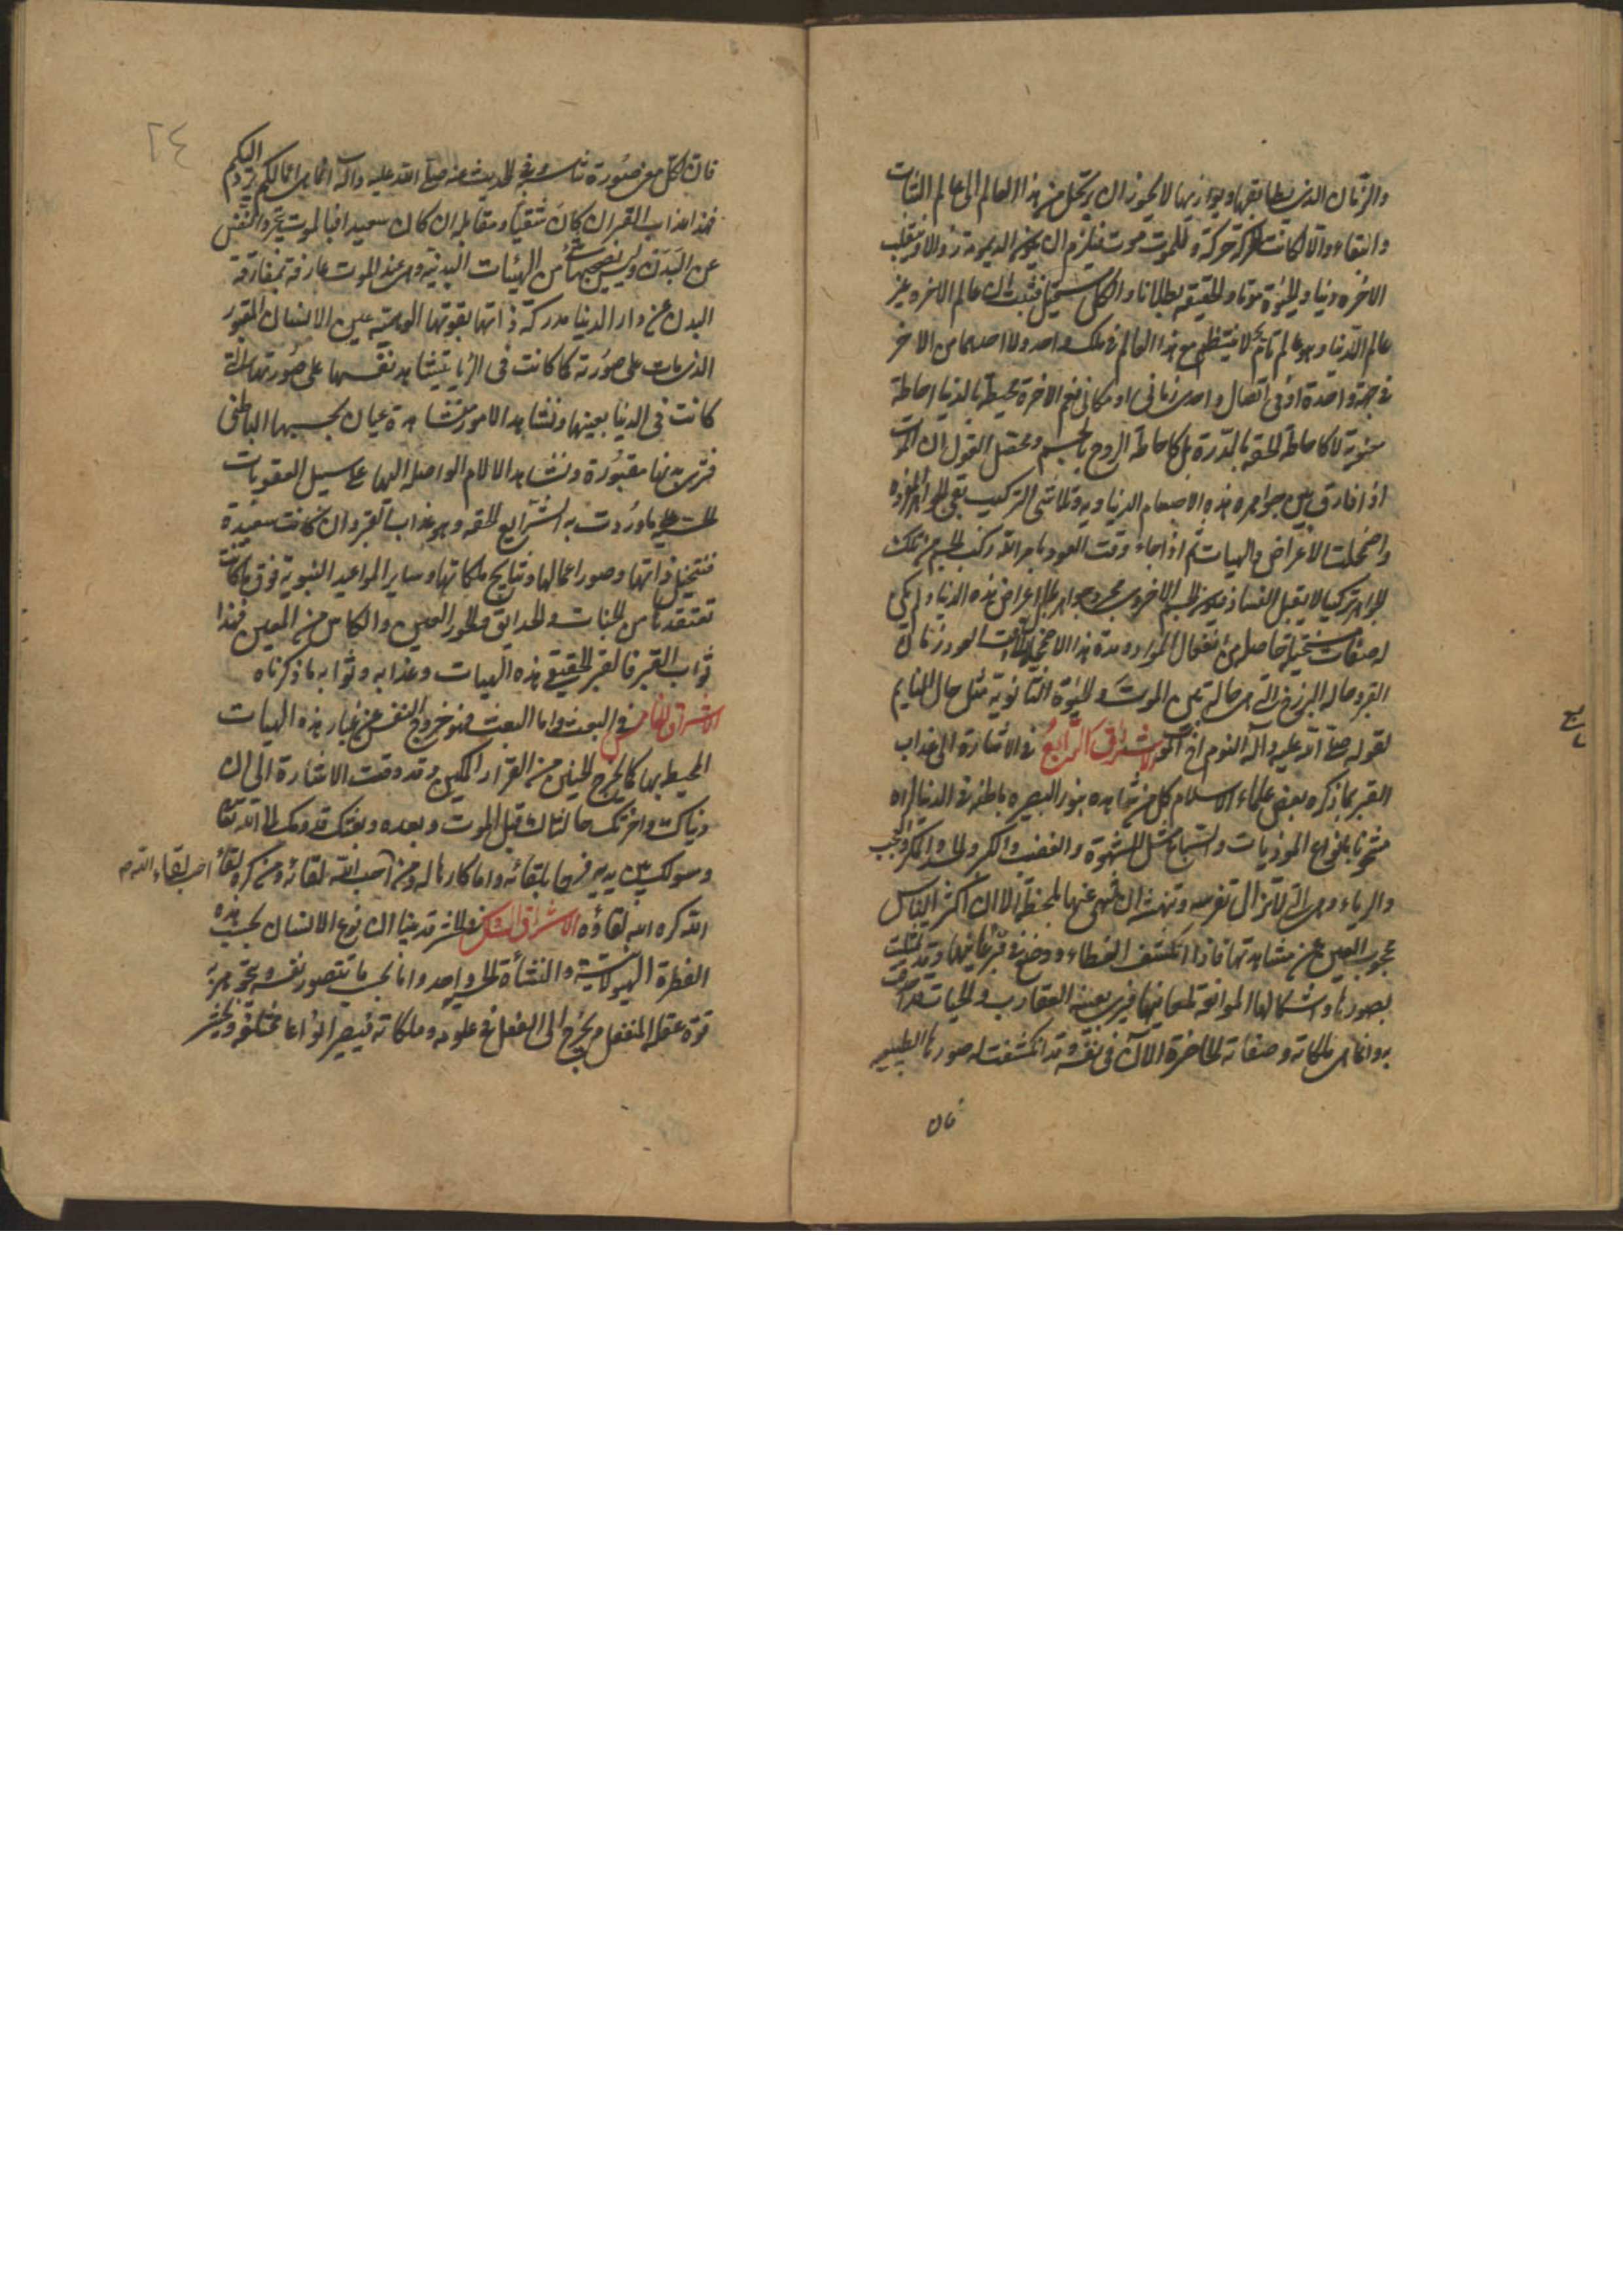 والزمان الذی یطابقها ویوازیها لا یجوز ان یرتحل من هذا العالم الی عالم الثبات
والبقاء والا لکانت للحرکة حرکة وللموت موت فیلزم ان یکون الدیمومة زوالا وینقلب
الاخرة دنیا والحیوة موتا والحقیقه بطلانا والکل مستحیل فثبت ان عالم الاخرة غیر
عالم الدنیا وهو عالم تام لا ینتظم مع هذا العالم فی سلک واحد ولا احدهما من الاخر
فی جهة واحدة او فی اتصال واحد زمانی او مکانی نعم الاخرة محیطة بالدنیا احاطة
معنویة لا کاحاطة الحقه بالدرة بل کاحاطة الروح بالجسم ومحصل القول ان الموت
اذا فارق بین جواهر هذه الاجسام الدنیاویه وتلاشی الترکیب تبقی الجواهر المفردة
واضمحلت الاعراض والهیات ثم اذا جاء وقت العود بامر الله رکب الجسم من تلک
الجواهر ترکیبا لا یقبل الفساد فیکون الجسم الاخروی مجرد جواهر بلا اعراض هذه الدنیا ولم یکن
له صفات مستحیلة حاصلة من انفعال المواد ومدة هذا الاضمحلال الی وقت العود زمان
القبر وحاله البرزخ التی هی حالة بین الموت والحیوة الثانویة مثل حال النایم
لقوله صلی الله علیه وآله النوم اخ الموت الاشراق الرابع فی الاشارة الی عذاب
القبر مما ذکره بعض علماء الاسلام کل من شاهده بنور البصیره باطنه فی الدنیا لراه
مشحونا بانواع الموذیات والسباع مثل الشهوة والغضب والکبر والحسد والمکر والعجب
والریاء وهی التی لا تزال تفرسه وتنهشه ان سهی عنها بلحظة الا ان اکثر الناس
محجوب العین عن مشاهدتها فاذا انکشف الغطاء ووضع فی قبره عاینها وقد تمثلت
بصورها واشکالها الموافقة لمعانیها فیری بعینه العقارب والحیات قد احدقت
به وانما هی ملکاته وصفاته الحاضرة الان فی نفسه وقد انکشفت له صورها الطبیعیه
فان
فان لکل معنی صورة تناسبه وفی الحدیث عنه صلی الله علیه وآله انما هی اعمالکم ترد الیکم
فهذا عذاب القبر ان کان شقیا ومقابله ان کان سعیدا فبالموت یتجرد النفس
عن البدن ولیس یصحبها شئ من الهیئات البدنیة وهی عند الموت عارفة بمفارقة
البدن عن دار الدنیا مدرکة ذاتها بقوتها الوهمیه عین الانسان المقبور
الذی مات علی صورته کما کانت فی الرؤیا تشاهد نفسها علی صورتها التی
کانت فی الدنیا بعینها وتشاهد الامور مشاهدة عیان بحسها الباطنی
فتری بدنها مقبورة وتشاهد الالام الواصله الیها علی سبیل العقوبات
الحسیه ما وردت به الشرایع الحقه وهو عذاب القبر وان کانت سعیدة
فتتخیل ذاتها وصور اعمالها ونتایج ملکاتها وسایر المواعید النبویة فوق ما کانت
تعتقدها من الجنات والحدایق والحور العین والکاس من المعین فهذا
ثواب القبر فالقبر الحقیقی هذه الهیات وعذابه وثوابه ما ذکرناه
الاشراق الخامس فی البعث واما البعث فهو خروج النفس عن غبار هذه الهیات
المحیط بها کما یخرج الجنین من القرار المکین وقد وقعت الاشارة الی ان
دنیاک واخرتک حالتاک قبل الموت وبعده وبعثک قدومک الی الله تعالی
ومثولک بین یدیه فرحا بلقائه واما کارها له ومن احب الله لقائه ومن کره لقاء
احب لقاء الله
الله کره الله لقاؤه الاشراق السادس فی الحشر قد بینا ان نوع الانسان بحسب هذه
الفطرة الهیولانیة والنشأة الحسیة واحد وانما بحسب ما تتصور نفسه بحوهریة
قوة عقله المنفعل ویخرج الی الفعل فی علومه وملکاته فیصیر انواعا مختلفة ویحشر
٢٤